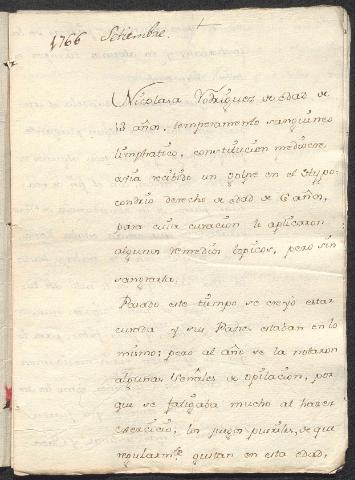 1766 Setiembre.
Nicolasa Rodriguez de edad de
13 años, temperamento sanguineo
limphatico, constitucion mediocre
avia recibido un golpe en el Hypo-
condrio derecho de edad de 6 años,
para cuia curacion le aplicaron
algunos remedios topicos, pero sin
sangrarla.
Pasado este tiempo se creyó estar
curada y sus Padres estaban en lo
mismo; pero al año se la notaron
algunas señales de opilacion, por
que se fatigaba mucho al hacer
exercicio, los juegos pueriles, de que
regularmte. gustan en esta edad,